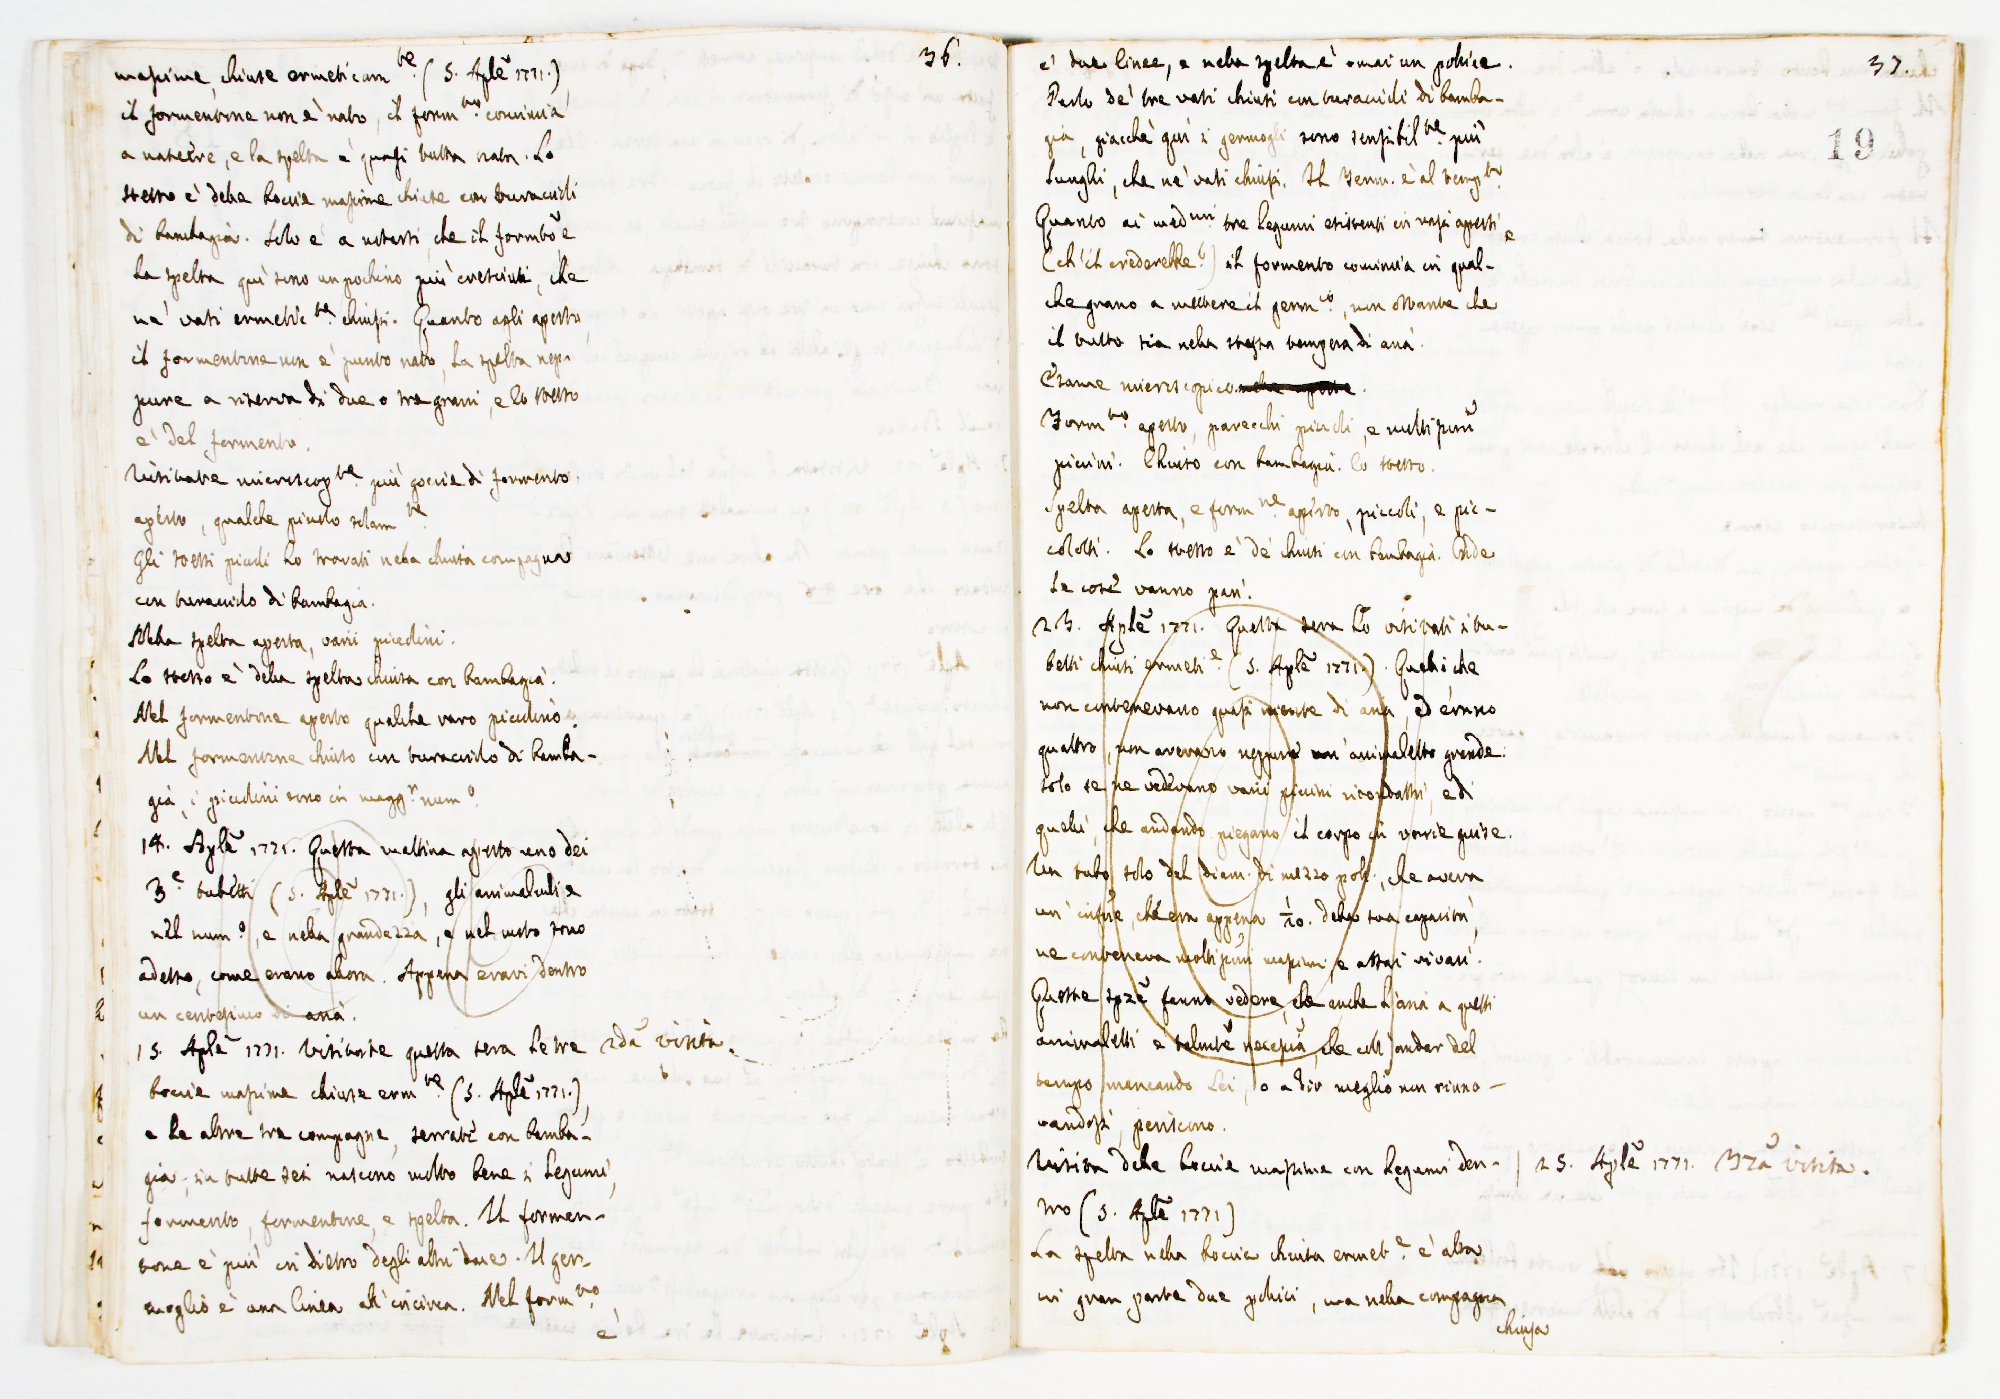 36.
massime, chiuse ermeticam.te (5. Aple 1771.),
il formentone non è nato, il form.to comincia
a nascere, e la spelta è quasi tutta nata. Lo
stesso è delle boccie massime chiuse con turaccioli
di bambagia. Solo è a notarsi, che il formto e
la spelta quì sono un pochino più cresciuti, che
ne' vasi ermetic.te chiusi. Quanto agli aperti,
il formentone non è punto nato, la spelta nep-
pure a riserva di due o tre grani, e lo stesso
è del formento.
Visitate microscop.te più goccie di formento
aperto, qualche piccolo solam.te
Gli stessi piccoli ho trovati nella chiusa compagna
con turacciolo di bambagia.
Nella spelta aperta, varii piccolini.
Lo stesso è della spelta chiusa con bambagia.
Nel formentone aperto qualche raro piccolino.
Nel formentone chiuso con turacciolo di bamba-
gia, i piccolini sono in magg.r num.o
14. Aple 1771. Questa mattina aperto uno dei
3.e tubetti (5. Aple 1771.), gli animaluli e
nel num.o, e nella grandezza, e nel moto sono
adesso, come erano allora. Appena eravi dentro
un centesimo di aria.
15. Aple 1771. Visitate questa sera le tre 2da visita.
boccie massime chiuse erm.te (5. Aple 1771.),
e le altre tre compagne, serrate con bamba-
gia, in tutte sei nascono molto bene i legumi,
formento, formentone, e spelta. Il formen-
tone è più in dietro degli altri due. Il ger-
moglio è una linea all'incirca. Nel form.to
è
37.
19
è due linee, e nella spelta è omai un pollice.
Parlo de' tre vasi chiusi con turaccioli di bamba-
gia, giacchè quì i germogli sono sensibil.te più
lunghi, che ne' vasi chiusi. Il Term. è al temp.to
Quanto ai medmi tre legumi esistenti in vasi aperti e
(ch'il crederebbe!) il formento comincia in qual-
che grano a mettere il germ.io, non ostante che
il tutto sia nella stessa tempera di aria.
Esame microscopico.
Form.to aperto, parecchi piccoli, e molti più
piccini. Chiuso con bambagia. lo stesso.
Spelta aperta, e form.ne aperto, piccoli, e pic-
colotti. Lo stesso è de' chiusi con bambagia. Onde
le cose vanno pari.
23. Aple 1771. Questa sera ho visitati i tu-
betti chiusi ermeti.e (5. Aple 1771.) Quelli che
non contenevano quasi niente di aria, ed erano
quattro, non avevano neppure un'animaletto grande.
solo se ne vedevano varii piccini ritondastri, e di
quelli, che andando piegano il corpo in varie guise.
Un tubo solo del diam. di mezzo poll., che aveva
un'infne, che era appena 1/20. della sua capacità,
ne conteneva molti più massimi e assai vivaci.
Queste spze fanno vedere, che anche l'aria a questi
animaletti è talmte necessia, che coll'andar del
tempo mancando lei, o a dir meglio non rinno-
vandosi, periscono.
Visita delle boccie massime con legumi den- | 25. Aple 1771. 3za visita.
tro (5. Aple 1771)
La spelta nella boccia chiusa ermet.e è alta
in gran parte due pollici, ma nella compagna
chiusa